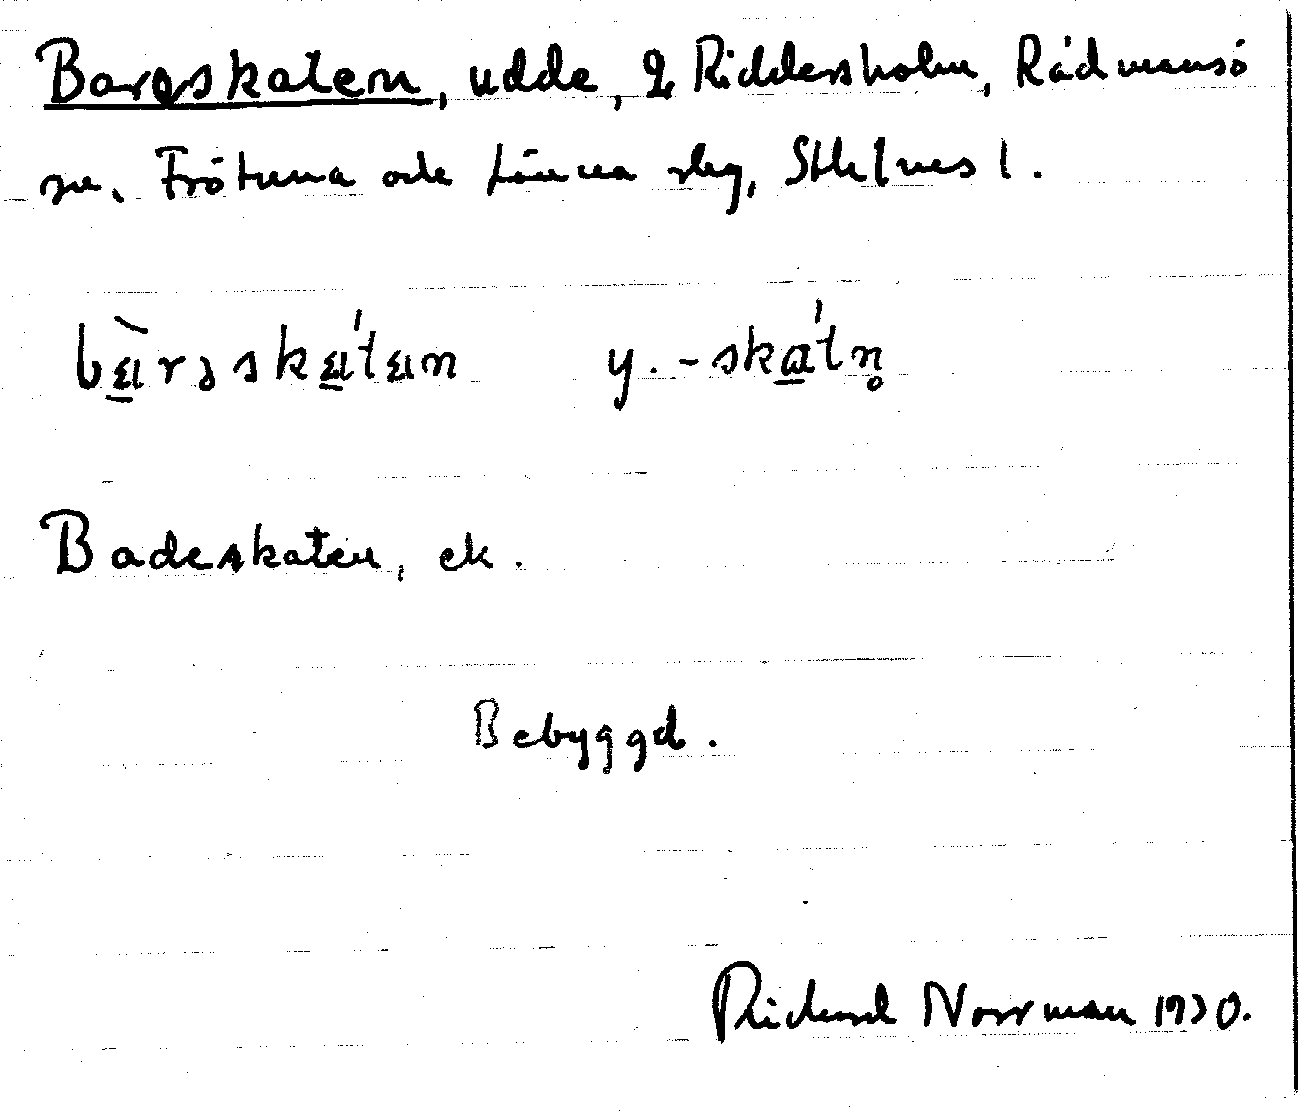 Bargskaten, udde, Riddersholm, Rådmansö
sn, Frötuna och Länna slg, Sthlms l.
y. -skatn̥
Badeskaten, ek.
Bebyggd.
Rickard Norrman 1930.